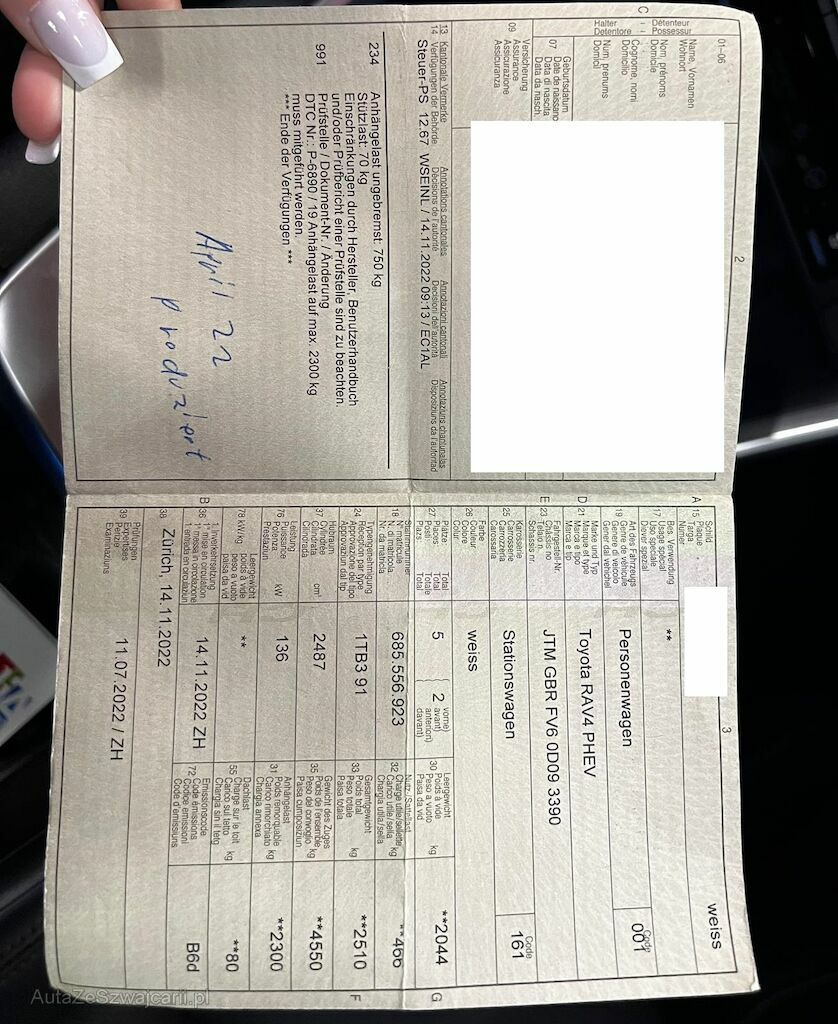 2
C
01-06
Name, Vornamen
Wohnort
Nom, prénoms
Domicile
Cognome, nomi
Domicilio
Num, prenums
Domicil
Halter - Détenteur
Detentore - Possessur
07
Geburtsdatum
Date de naissance
Data di nascita
Data da nasch.
09
Versicherung
Assurance
Assicurazione
Assicuranza
13 Kantonale Vermerke Annotations cantonales Annotazioni cantonali Annotaziuns chantunalas
14 Verfügungen der Behörde Décisions de l'autorité Decisioni dell'autorità Disposiziuns da l'autoritad
Steuer-PS 12.67 WSEINL / 14.11.2022 09:13 / EC1AL
234 Anhängelast ungebremst: 750 kg
Stützlast: 70 kg
Einschränkungen durch Hersteller, Benutzerhandbuch
und/oder Prüfbericht einer Prüfstelle sind zu beachten.
991 Prüfstelle / Dokument-Nr. / Änderung
DTC Nr.: P-6890 / 19 Anhängelast auf max. 2300 kg
muss mitgeführt werden.
*** Ende der Verfügungen ***
April 22
produziert
3
A 15
Schild
Plaque
Targa
Numer
weiss
17
Bes. Verwendung
Usage spécial
Uso speciale
Diever spezial
**
19
Art des Fahrzeugs
Genre de véhicule
Genere di veicolo
Gener dal vehichel
Personenwagen
Code
001
D 21
Marke und Typ
Marque et type
Marca e tipo
Marca e tip
Toyota RAV4 PHEV
E 23
Fahrgestell-Nr.
Châssis no
Telaio n.
Schassis nr.
JTM GBR FV6 0D09 3390
25
Karosserie
Carrosserie
Carrozzeria
Carossaria
Stationswagen
Code
161
26
Farbe
Couleur
Colore
Colur
weiss
27
Plätze Total
Places Total
Posti Totale
Plazs Total
5
2
vorne)
avant)
anteriori)
davant)
30
Leergewicht
Poids à vide
Peso a vuoto
Paisa da vid
kg
**2044
G
18
Stammnummer
N° matricule
N. di matricola
Nr. da matricla
685.556.923
32
Nutz-/Sattellast
Charge utile/sellette
Carico utile/sella
Chargia utila/sella
kg
**466
24
Typengenehmigung
Réception par type
Approvazione del tipo
Approvaziun dal tip
1TB3 91
33
Gesamtgewicht
Poids total
Peso totale
Paisa totala
kg
**2510
F
37
Hubraum
Cylindrée
Cilindrata
Cilindrada
cm³
2487
35
Gewicht des Zuges
Poids de l'ensemble
Peso del convoglio
Paisa cumposiziun
kg
**4550
76
Leistung
Puissance
Potenza
Prestaziun
kW
136
31
Anhängelast
Poids remorquable
Carico rimorchiato
Chargia annexa
kg
**2300
78 kW/kg
Leergewicht
poids à vide
peso a vuoto
paisa da vid
**
55
Dachlast
Charge sur le toit
Carico sul tetto
Chargia sin il tetg
kg
**80
B 36
1. Inverkehrsetzung
1re mise en circulation
1a messa in circolazione
1. entrada en circulaziun
14.11.2022 ZH
72
Emissionscode
Code émissions
Codice emissioni
Code d'emissiuns
B6d
38
Zürich, 14.11.2022
39
Prüfungen
Expertises
Perizie
Examinaziuns
11.07.2022 / ZH
AutaZeSzwajcarii.pl